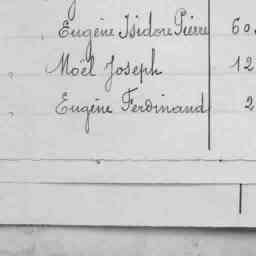 Eugène Isidore Pierre 60
Moël Joseph 12
Eugène Ferdinand 2